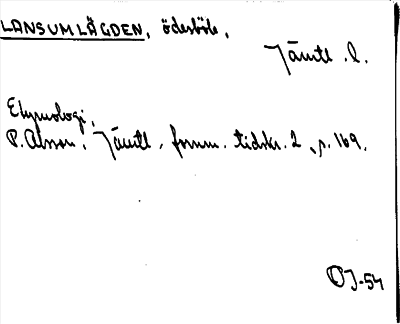 LANSUMLÄGDEN, ödesböle,
Jämtl. l.
Etymologi,
P. Olsson, Jämtl. fornm. tidskr. 2, s. 169.
OJ-54